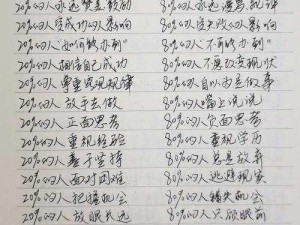 20%的人永远赞美鼓励 80%的人永远漫骂批评
20%的人受成功的人影响 80%的人受失败的人影响
20%的人"如何能办到" 80%的人"不可能办到"
20%的人相信自己成功 80%的人不愿改变现状
20%的人尊重客观规律 80%的人自以为是做事
20%的人放手去做 80%的人嘴上说说
20%的人正面思考 80%的人负面思考
20%的人重视经验 80%的人重视学历
20%的人善于坚持 80%的人总是放弃
20%的人面对困难 80%的人逃避现实
20%的人把握机会 80%的人错失机会
20%的人放眼长远 80%的人只顾眼前